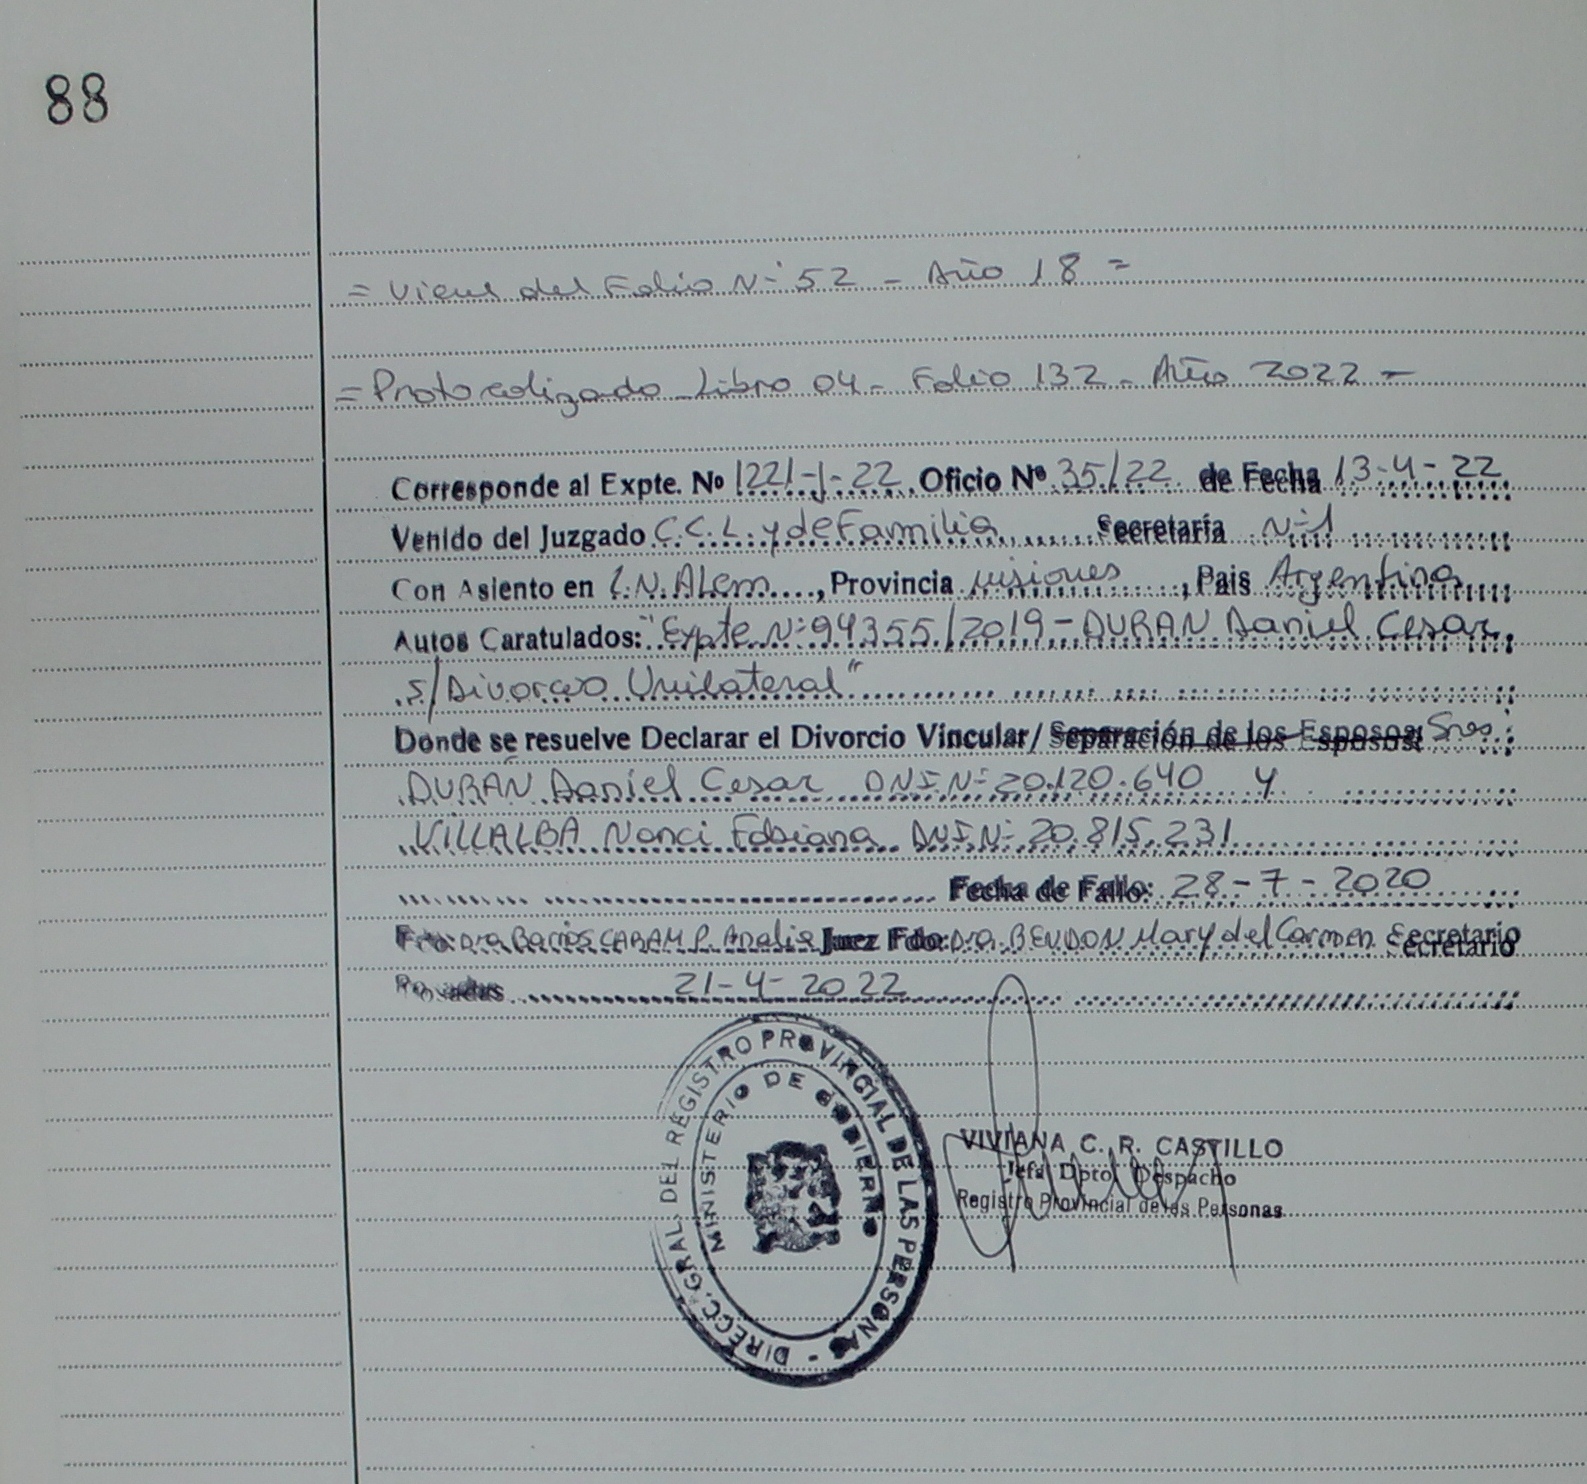 88
= Viene del Folio Nº 52 - Año 18 =
= Protocolizado Libro 04 - Folio 132 - Año 2022 -
Corresponde al Expte. Nº 1221-J-22, Oficio Nº 35/22 de Fecha 13-4-22
Venido del Juzgado C.C.L. y de Familia Secretaría Nº 1
Con Asiento en L.N. Alem, Provincia Misiones, Pais Argentina
Autos Caratulados: "Expte Nº 94355/2019 - DURAN Daniel Cesar
s/Divorcio Unilateral"
Donde se resuelve Declarar el Divorcio Vincular/ Separación de los Esposos: Sres:
DURAN Daniel Cesar DNI Nº 20.120.640 y
VILLALBA Nanci Fabiana DNI Nº 20.815.231
Fecha de Fallo: 28-7-2020
Fdo: Dra Barrios CARAM P. Analia Juez Fdo: Dra. BENDON Mary del Carmen Secretario
Posadas 21-4-2022
DIRECC. GRAL. DEL REGISTRO PROVINCIAL DE LAS PERSONAS -
MINISTERIO DE GOBIERNO
VIVIANA C. R. CASTILLO
Jefa Dpto. Despacho
Registro Provincial de las Personas